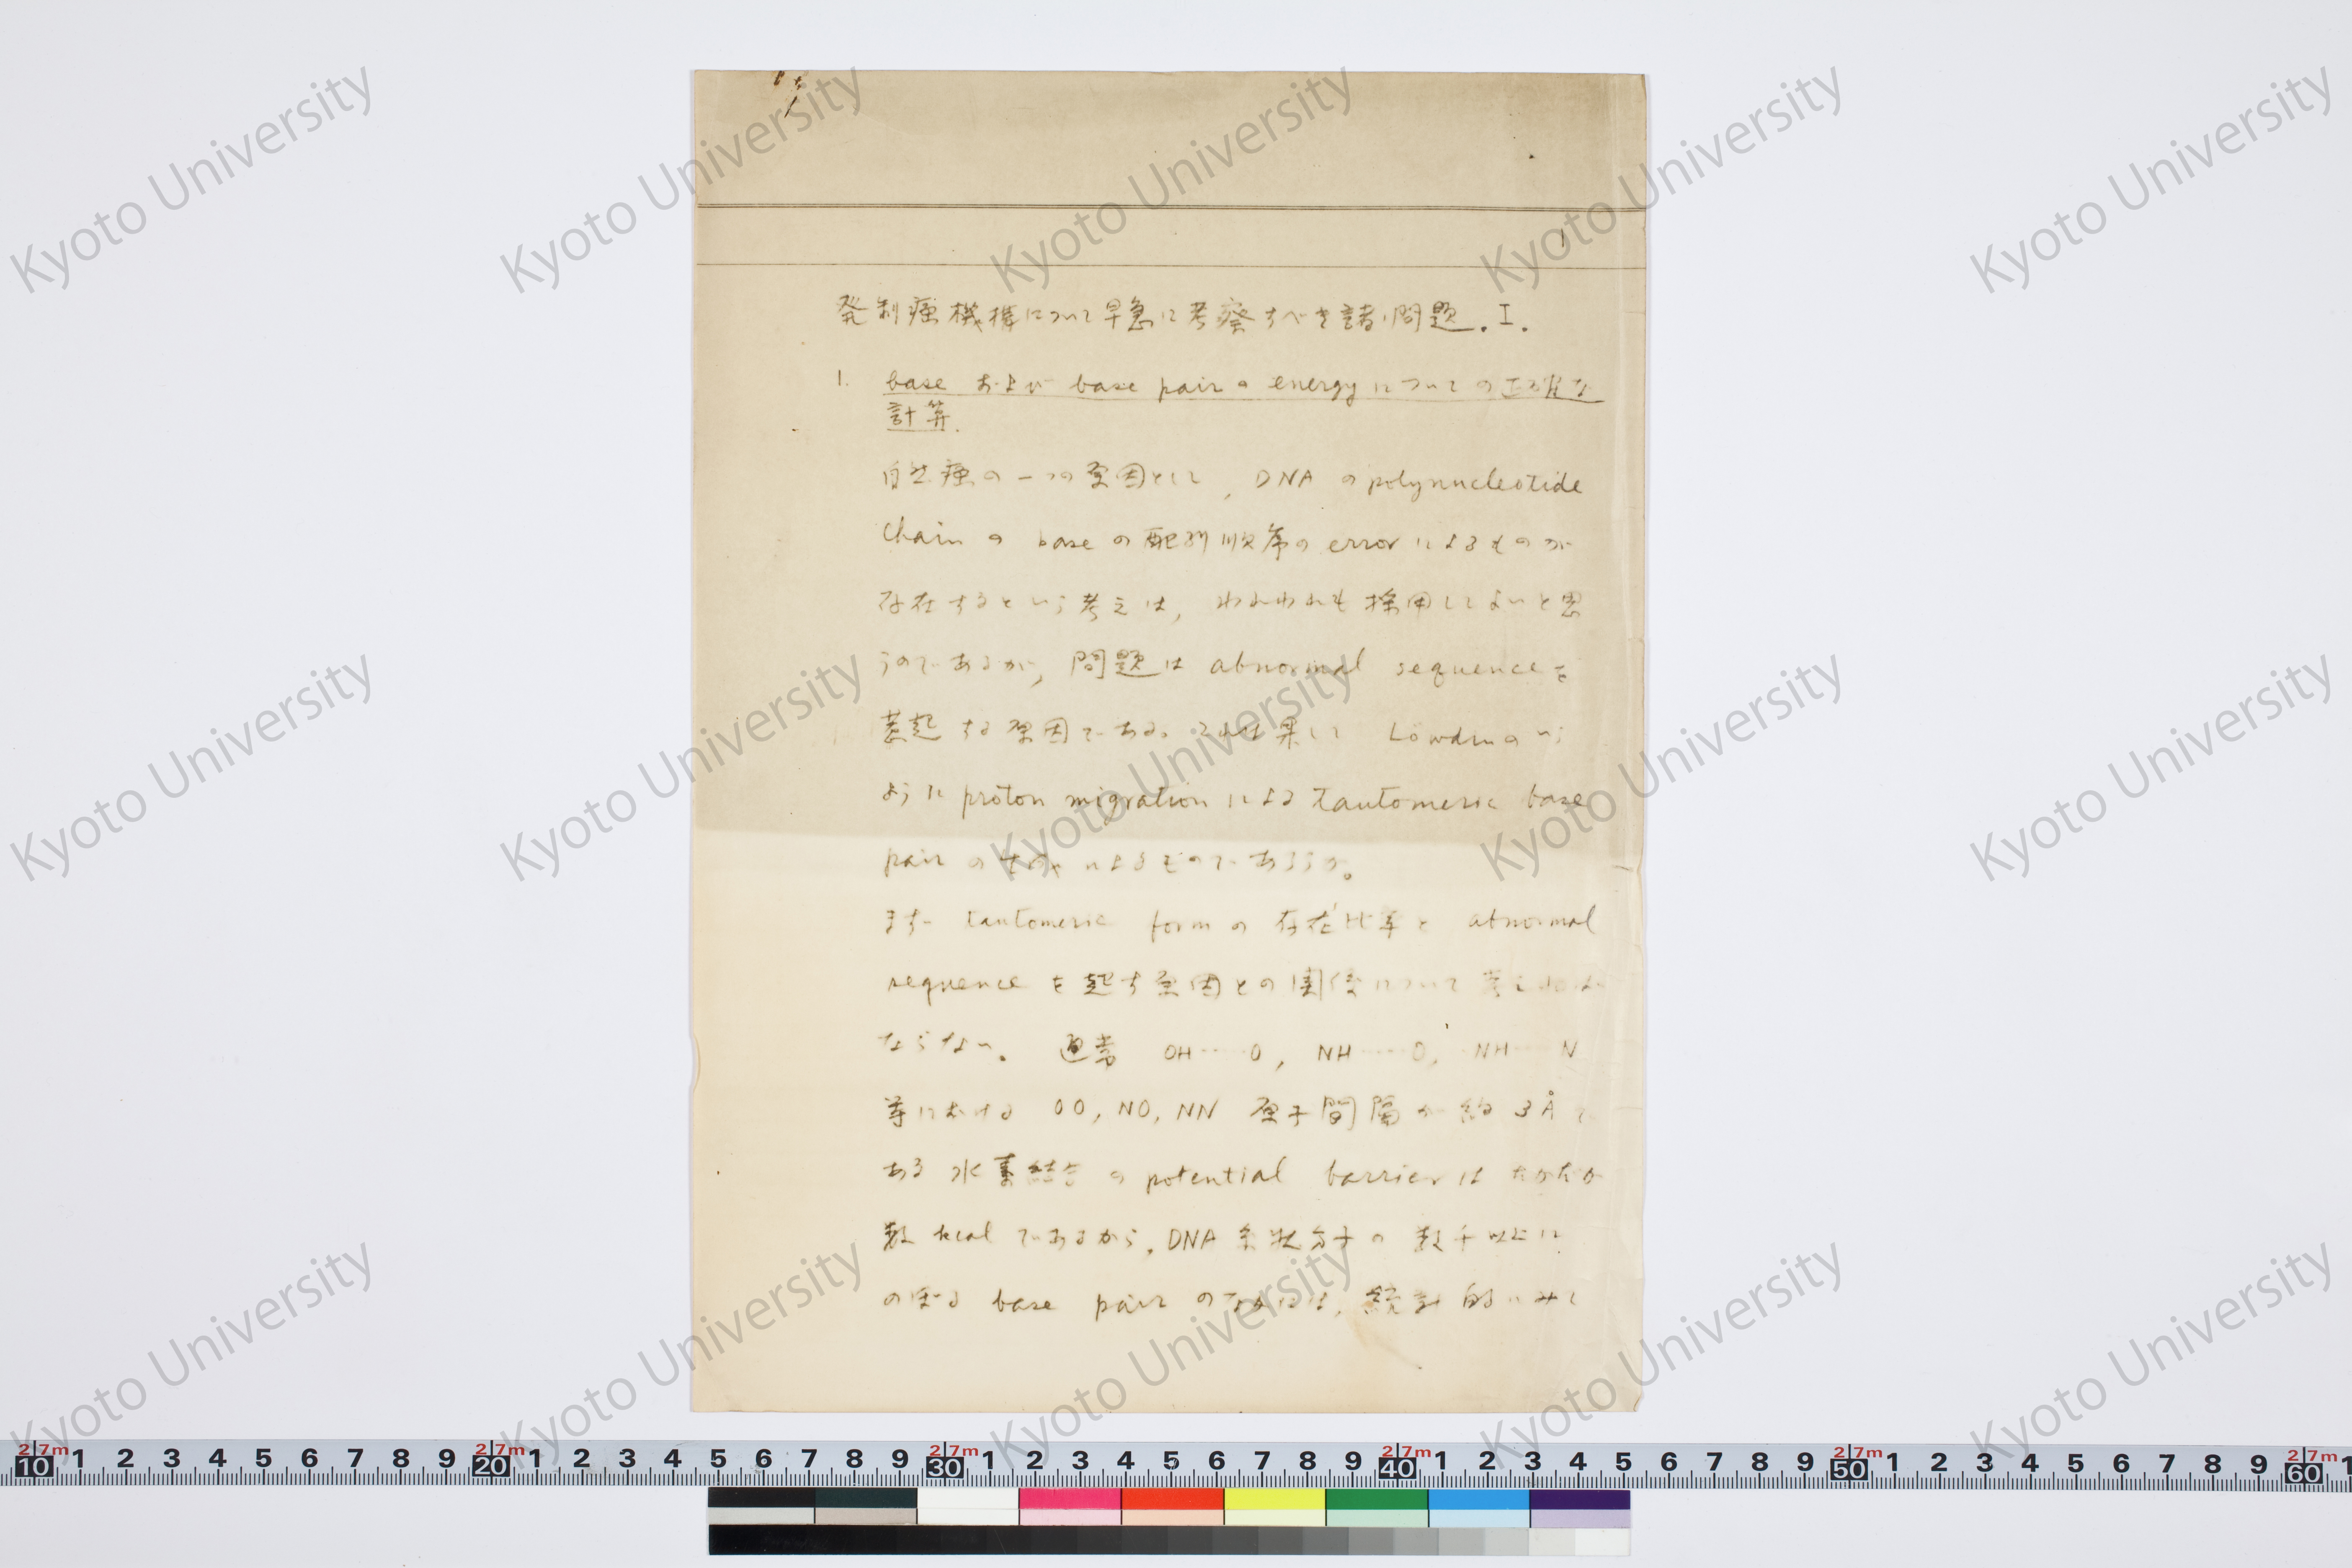 1
発制癌機構について早急に考察すべき諸問題.I.
1. base および base pair の energy についての正確な
計算.
自然癌の一つの原因として, DNA の polynucleotide
chain の base の配列順序の error によるものが
存在するという考えは, われわれも採用してよいと思
うのであるが, 問題は abnormal sequence を
惹起する原因である。これは果して Löwdin のいう
ように proton migration による tautomeric base
pair の生成によるものであろうか。
まず tautomeric form の存在比率と abnormal
sequence を起す原因との関係について考えねば
ならない。 通常 OH……O, NH……O, NH……N
等における OO, NO, NN 原子間隔が約 3Å で
ある水素結合の potential barrier はたかだか
数 kcal であるから, DNA 糸状分子の数千以上に
のぼる base pair のなかには, 統計的にみて
Kyoto University